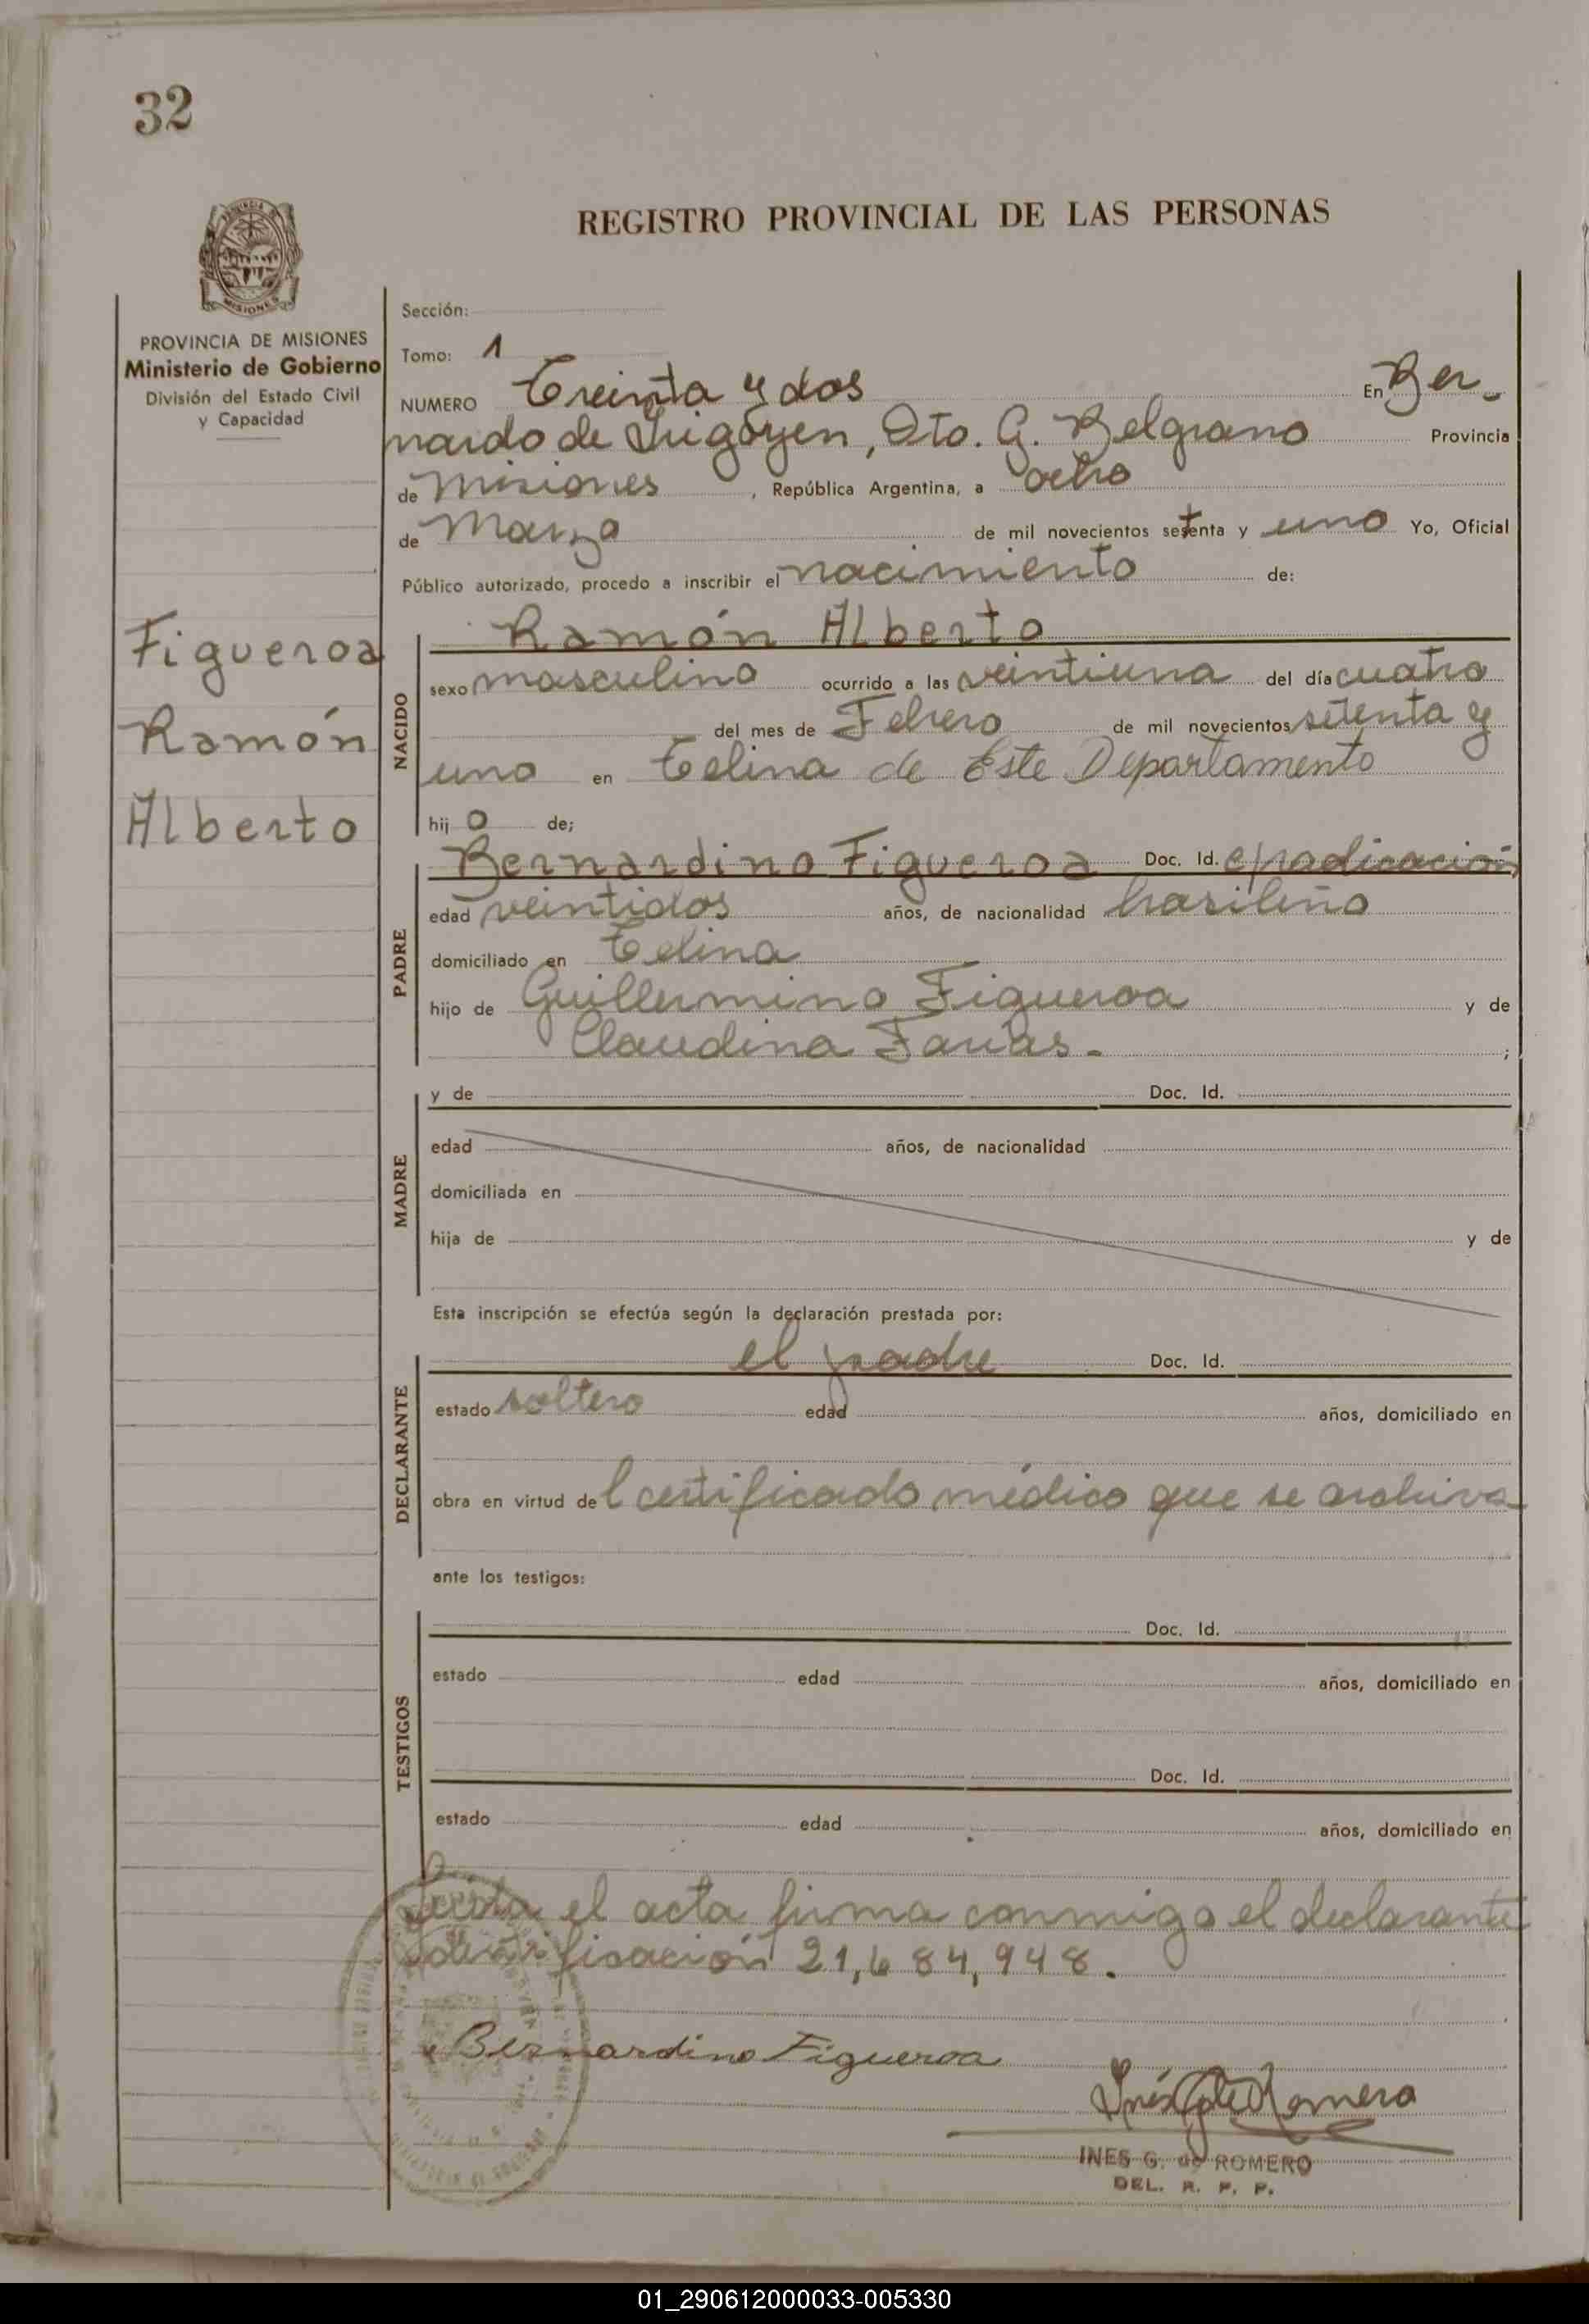 32
REGISTRO PROVINCIAL DE LAS PERSONAS
MISIONES
PROVINCIA DE MISIONES
Ministerio de Gobierno
División del Estado Civil
y Capacidad
Figueroa
Ramón
Alberto
Sección:
Tomo: 1
NUMERO Treinta y dos En Ber-
nardo de Irigoyen, Dto. G. Belgrano Provincia
de Misiones, República Argentina, a ocho
de Marzo de mil novecientos setenta y uno Yo, Oficial
Público autorizado, procedo a inscribir el nacimiento de:
NACIDO
Ramón Alberto
sexo masculino ocurrido a las veintiuna del día cuatro
del mes de Febrero de mil novecientos setenta y
uno en Celina de Este Departamento
hijo de;
PADRE
Bernardino Figueroa Doc. Id. c/radicación
edad veintidos años, de nacionalidad brasileño
domiciliado en Celina
hijo de Guillermino Figueroa y de
Claudina Farias.-;
MADRE
y de Doc. Id.
edad años, de nacionalidad
domiciliada en
hija de y de
Esta inscripción se efectúa según la declaración prestada por:
DECLARANTE
el padre Doc. Id.
estado soltero edad años, domiciliado en
obra en virtud del certificado médico que se archiva
ante los testigos:
TESTIGOS
Doc. Id.
estado edad años, domiciliado en
Doc. Id.
estado edad años, domiciliado en
Leída el acta firma conmigo el declarante
identificación 21,684,948.
Bernardino Figueroa
Inés G de Romero
INES G. de ROMERO
DEL. R. P. P.
01_290612000033-005330